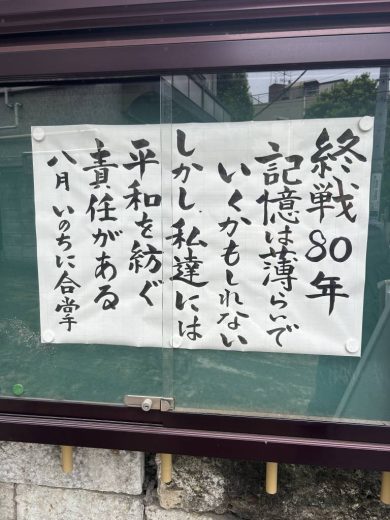 終戦80年
記憶は薄らいで
いくかもしれない
しかし私達には
平和を紡ぐ
責任がある
八月 いのちに合掌